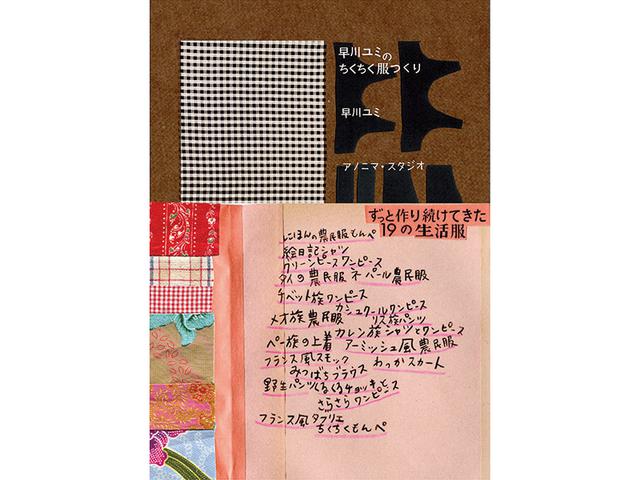 早川ユミの
ちくちく服つくり
早川ユミ
アノニマ・スタジオ
ずっと作り続けてきた
19の生活服
にほんの農民服もんぺ
絵日記シャツ
グリーンピースワンピース
タイの農民服 ネパール農民服
チベット族ワンピース
カシュクールワンピース
メオ族農民服 リス族パンツ
カレン族シャツとワンピース
ペー族の上着 アーミッシュ風農民服
フランス風スモック わっかスカート
みつばちブラウス
野生パンツ くるくるチョッキと
さらさらワンピース
フランス風タブリエ
ちくちくもんぺ